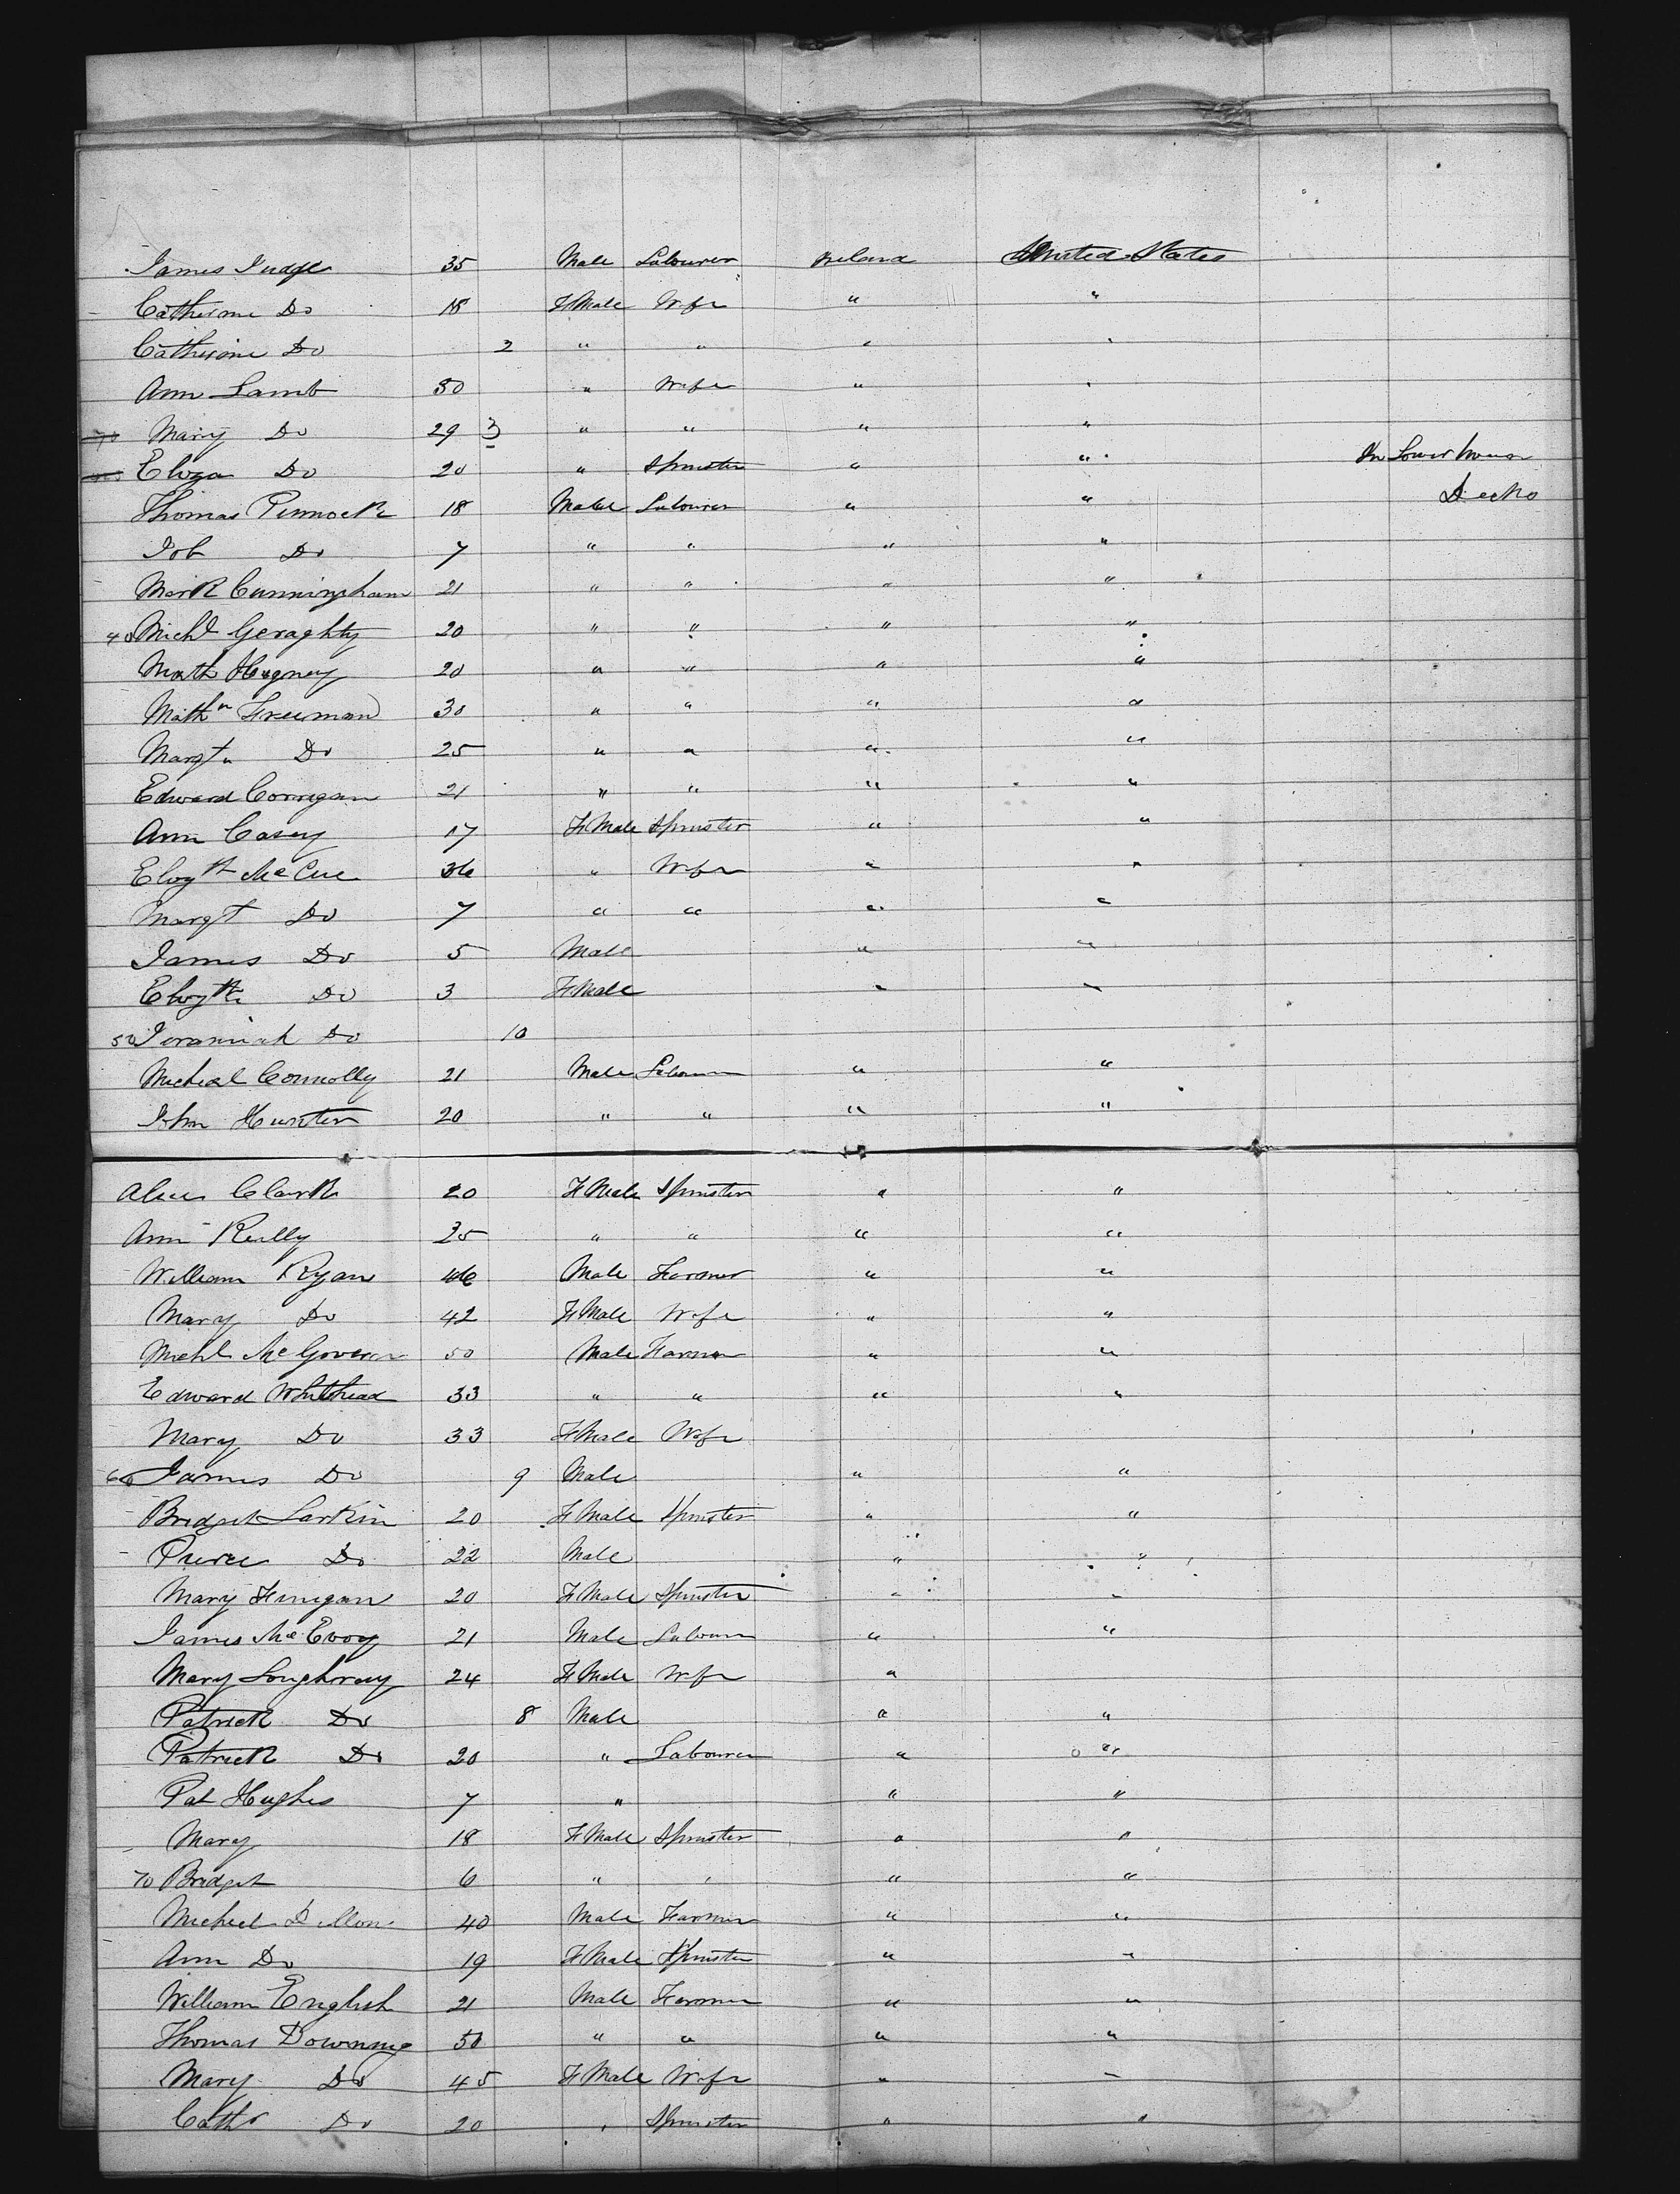 James Judge 35 Male Labourer Ireland United States
Catherine Do 18 F Male Wife " "
Catherine Do 2 " " " "
Ann Lamb 30 " Wife " "
Mary Do 29 3 " " " "
Eliza Do 20 " Spinster " " In Lower
Thomas Pinnock 18 Male Labourer " "
Job Do 7 " " " "
Mark Cunningham 21 " " " "
40 Michl Geraghty 20 " " " "
20 " " " "
Mathw Freeman 30 " " " "
Margt Do 25 " " " "
Edward Corrigan 21 " " " "
Ann Casey 17 F Male Spinster " "
Elizth McCue 36 " Wife " "
Margt Do 7 " " " "
James Do 5 Male " "
Elizth Do 3 F Male " "
50 Jeramiah Do 10
Micheal Connolly 21 Male Labourer " "
John Hunter 20 " " " "
Alice Clark 20 F Male Spinster " "
Ann Reilly 25 " " " "
William Ryan 46 Male Farmer " "
Mary Do 42 F Male Wife " "
Michl McGovern 50 Male Farmer " "
Edward Whithead 33 " " " "
Mary Do 33 F Male Wife
60 James Do 9 Male " "
Bridget Larkin 20 F Male Spinster " "
Pierce Do 22 Male " "
Mary Finigan 20 F Male Spinster " "
James McEvoy 21 Male Labourer " "
Mary Loughrey 24 F Male Wife "
Patrick Do 8 Male " "
Patrick Do 20 " Labourer " "
Pat Hughes 7 " " "
Mary 18 F Male Spinster " "
70 Bridget 6 " " " "
Micheel Dillon 40 Male Farmer " "
Ann Do 19 F Male Spinster " "
William English 21 Male Farmer " "
Thomas Downing 50 " " " "
Mary Do 45 F Male Wife " "
Cath Do 20 " Spinster " "